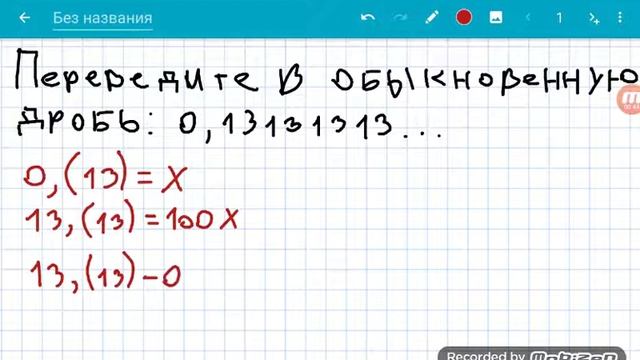 Без названия
1
Переведите в обыкновенную
дробь: 0,13131313...
0,(13)=X
13,(13)=100X
13,(13)-0
00:44
Recorded by
Mobizen